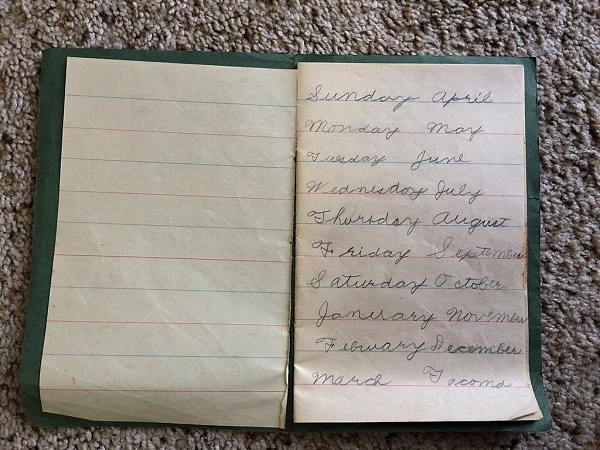 Sunday April
Monday May
Tuesday June
Wednesday July
Thursday August
Friday September
Saturday October
January November
February December
March Tacoma